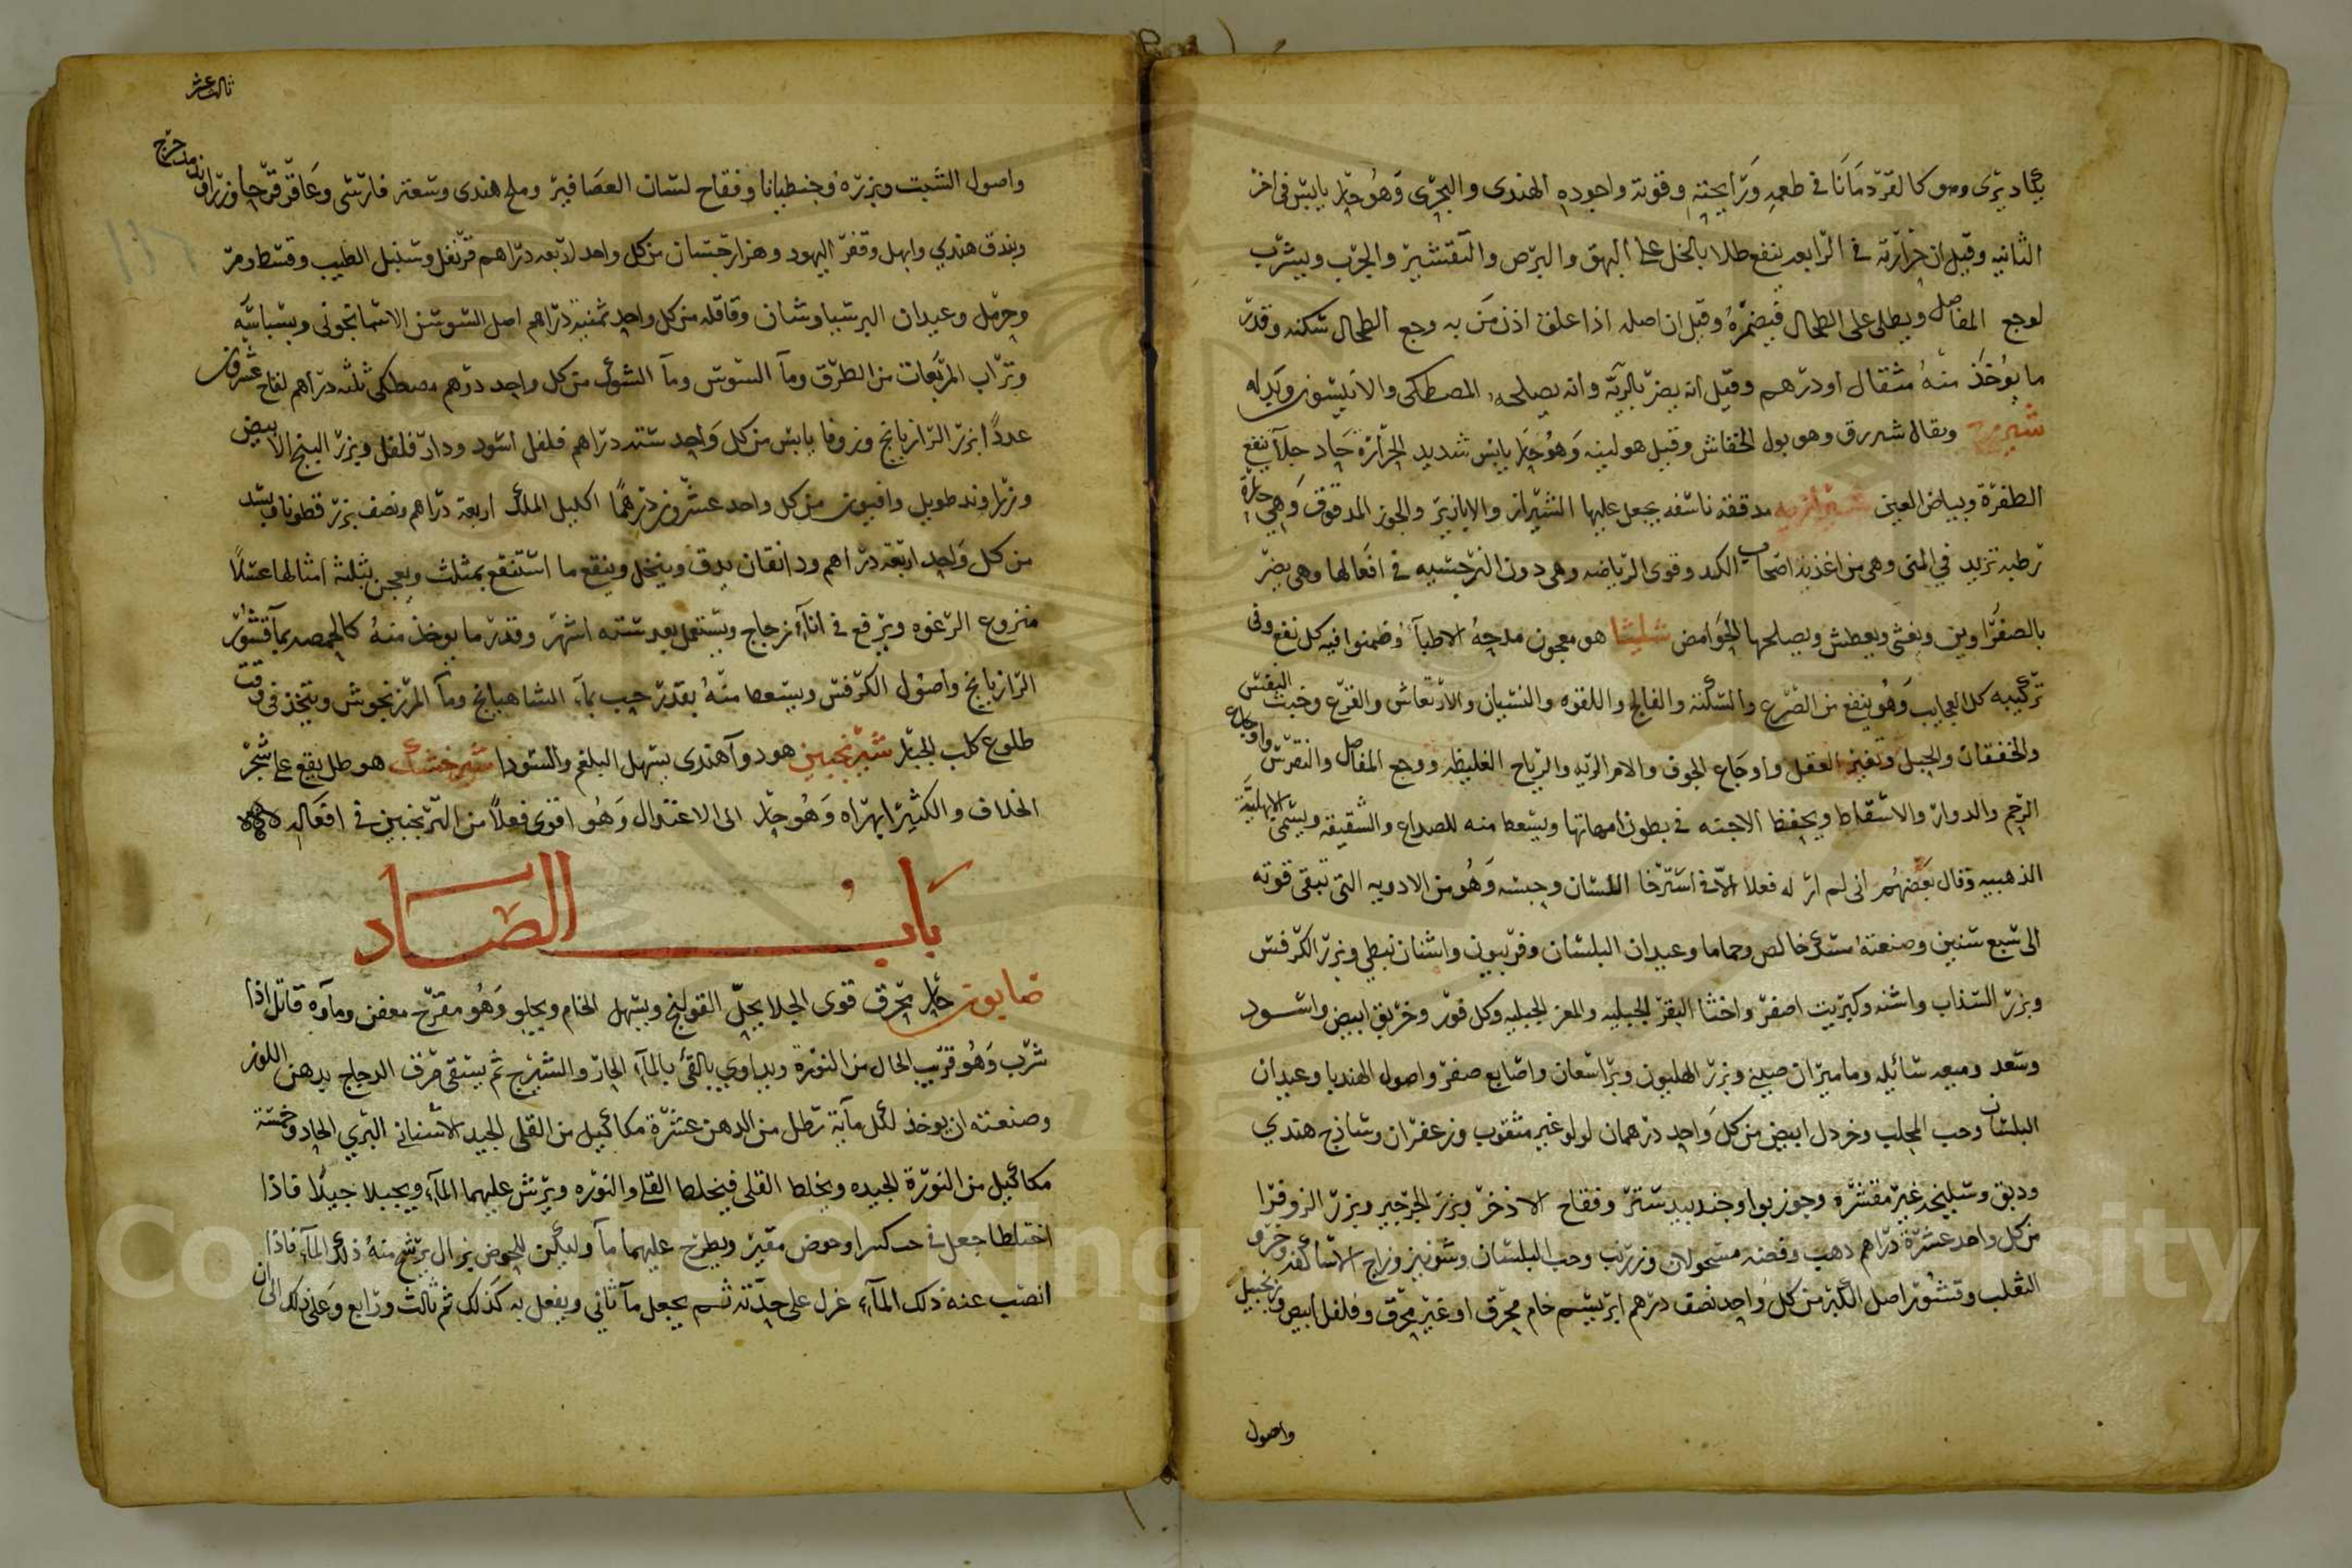 يكاد يرى وهو كالقردمانا في طعمه ورايحته وقوته واجوده الهندى والبحرى وهو حار يابس في اخر
الثانيه وقيل ان حرارته في الرابعه ينفع طلا بالخل على البهق والبرص والتقشير والجرب ويشرب
لوجع المفاصل ويطلى على الطحال فيضمره وقيل ان اصله اذا علق اذن من به وجع الطحال سكنه وقدر
ما يوخذ منه مثقال او درهم وقيل انه يضر بالريه وانه يصلحه المصطكى والانيسون وبدله
ويقال شيررق وهو بول الخفاش وقيل هو لبنه وهو حار يابس شديد الحرارة حاد جلا ينفع
الطفرة وبياض العين شيرازيه مدققه ناشفه يجعل عليها الشيراز والابازير والجوز المدقوق وهي حارة
رطبه تزيد في المنى وهي من اغذية اصحاب الكد وقوى الرياضه وهي دون النرجسيه في افعالها وهي يضر
بالصفرا وين ويغثى ويعطش ويصلحها الحوامض شليثا هو معجون مدحه الاطبآ وضمنوا فيه كل نفع وفى
تركيبه كل العجايب وهو ينفع من الصرع والسكته والفالج واللقوه والنسيان والارتعاش والفزع وخبث النفس
والخفقان والحبل وتغير العقل واوجاع الجوف والام الريه والرياح الغليظه ووجع المفاصل والنقرس واوجاع
الرحم والدوار والاسقاط ويحفظ الاجنه في بطون امهاتها ويسعط منه للصداع والشقيقة ويسمى الالهيه
الذهبيه وقال بعضهم انى لم ار له فعلا الا في استرخا اللسان وحبسه وهو من الادويه التى تبقى قوته
الى سبع سنين وصنعته مسك خالص وحماما وعيدان البلسان وفربيون واشنان نبطى وبزر الكرفس
وبزر السذاب واشنه وكبريت اصفر واخثا البقر الجبليه والمعز الجبليه وكل قور وخربق ابيض واسود
وسعد وميعه سائله وماميران صينى وبزر الهليون وبراسعان واصابع صفر واصول الهندبا وعيدان
البلسان وحب المحلب وخردل ابيض من كل واحد درهمان لولو غير مثقوب وزعفران وساذج هندي
ودبق وسليخه غير مقشره وجوز بوا وجندبيدستر وفقاح الاذخر وبزر الجرجير وبزر الزوفرا
من كل واحد عشرة دراهم ذهب وفضه مسحولان وزرنب وحب البلسان وشونيز وزاج الاساكفه وخرو
الثعلب وقشور اصل الكبر من كل واحد نصف درهم ابريسم خام محرق او غير محرق وفلفل ابيض وزنجبيل
واصول
ثالث عشر
واصول الشبت وبزره وجنطيانا وفقاح لسان العصافير وملح هندى وسعتر فارسى وعاقرقرحا وزراوند مدحرج
وبندق هندي وابهل وقفر اليهود وهزارجسان من كل واحد اربعه دراهم قرنفل وسنبل الطيب وقسط ومر
وحرمل وعيدان البرسياوشان وقاقله من كل واحد ثمنية دراهم اصل السوسن الاسمانجونى وبسباسه
وتراب المربعات من الطرق ومآ السوس ومآ الشوك من كل واحد درهم مصطكى ثلثه دراهم لفاح عشرون
عددا بزر الرازيانج وزوفا يابس من كل واحد سته دراهم فلفل اسود ودار فلفل وبزر البنج الابيض
وزراوند طويل وافيون من كل واحد عشرون درهما اكليل الملك اربعة دراهم ونصف بزر قطونا وبسد
من كل واحد اربعة دراهم ودانقان يدق وينخل وينقع ما استنقع بمثلث ويعجن بثلثة امثالها عسلا
منزوع الرغوه ويرفع في انآء زجاج ويستعمل بعد سته اشهر وقدر ما يوخذ منه كالحمصه بمآ قشور
الرازيانج واصول الكرفس ويسعط منه بقدر حب بمآء الشاهبانج ومآ المرزنجوش ويتخذ في وقت
طلوع كلب الجبار شيرنجبين هو دوآ هندى يسهل البلغم والسودا شيرخشك هو طل يقع على شجر
الخلاف والكثيرا بهراه وهو حار الى الاعتدال وهو اقوى فعلا من الترنجبين في افعاله
باب الصاد
صابون حار محرق قوى الجلا يحل القولنج ويسهل الخام ويجلو وهو مقرح معفن ومآوه قاتل اذا
شرب وهو قريب الحال من النورة ويداوي بالقئ بالمآء الحار والشيرج ثم يسقى مرق الدجاج بدهن اللوز
وصنعته ان يوخذ لكل مآية رطل من الدهن عشرة مكاكيل من القلى الجيد الاشنانى البري الحاد وخمسة
مكاكيل من النورة الجيده ويخلط القلى فيخلط القلى والنوره ويرش عليهما المآء ويجبلا جبلا فاذا
اختلطا جعل في حب كبير او حوض مقير ويطرح عليهما مآ وليكن للحوض بزال يرشح منه ذلك المآء فاذا
انصب عنه ذلك المآء عزل على حدته ثم يجعل مآ ثانى ويفعل به كذلك ثم ثالث ورابع وعلى ذلك الى ان
Copyright © King Saud University